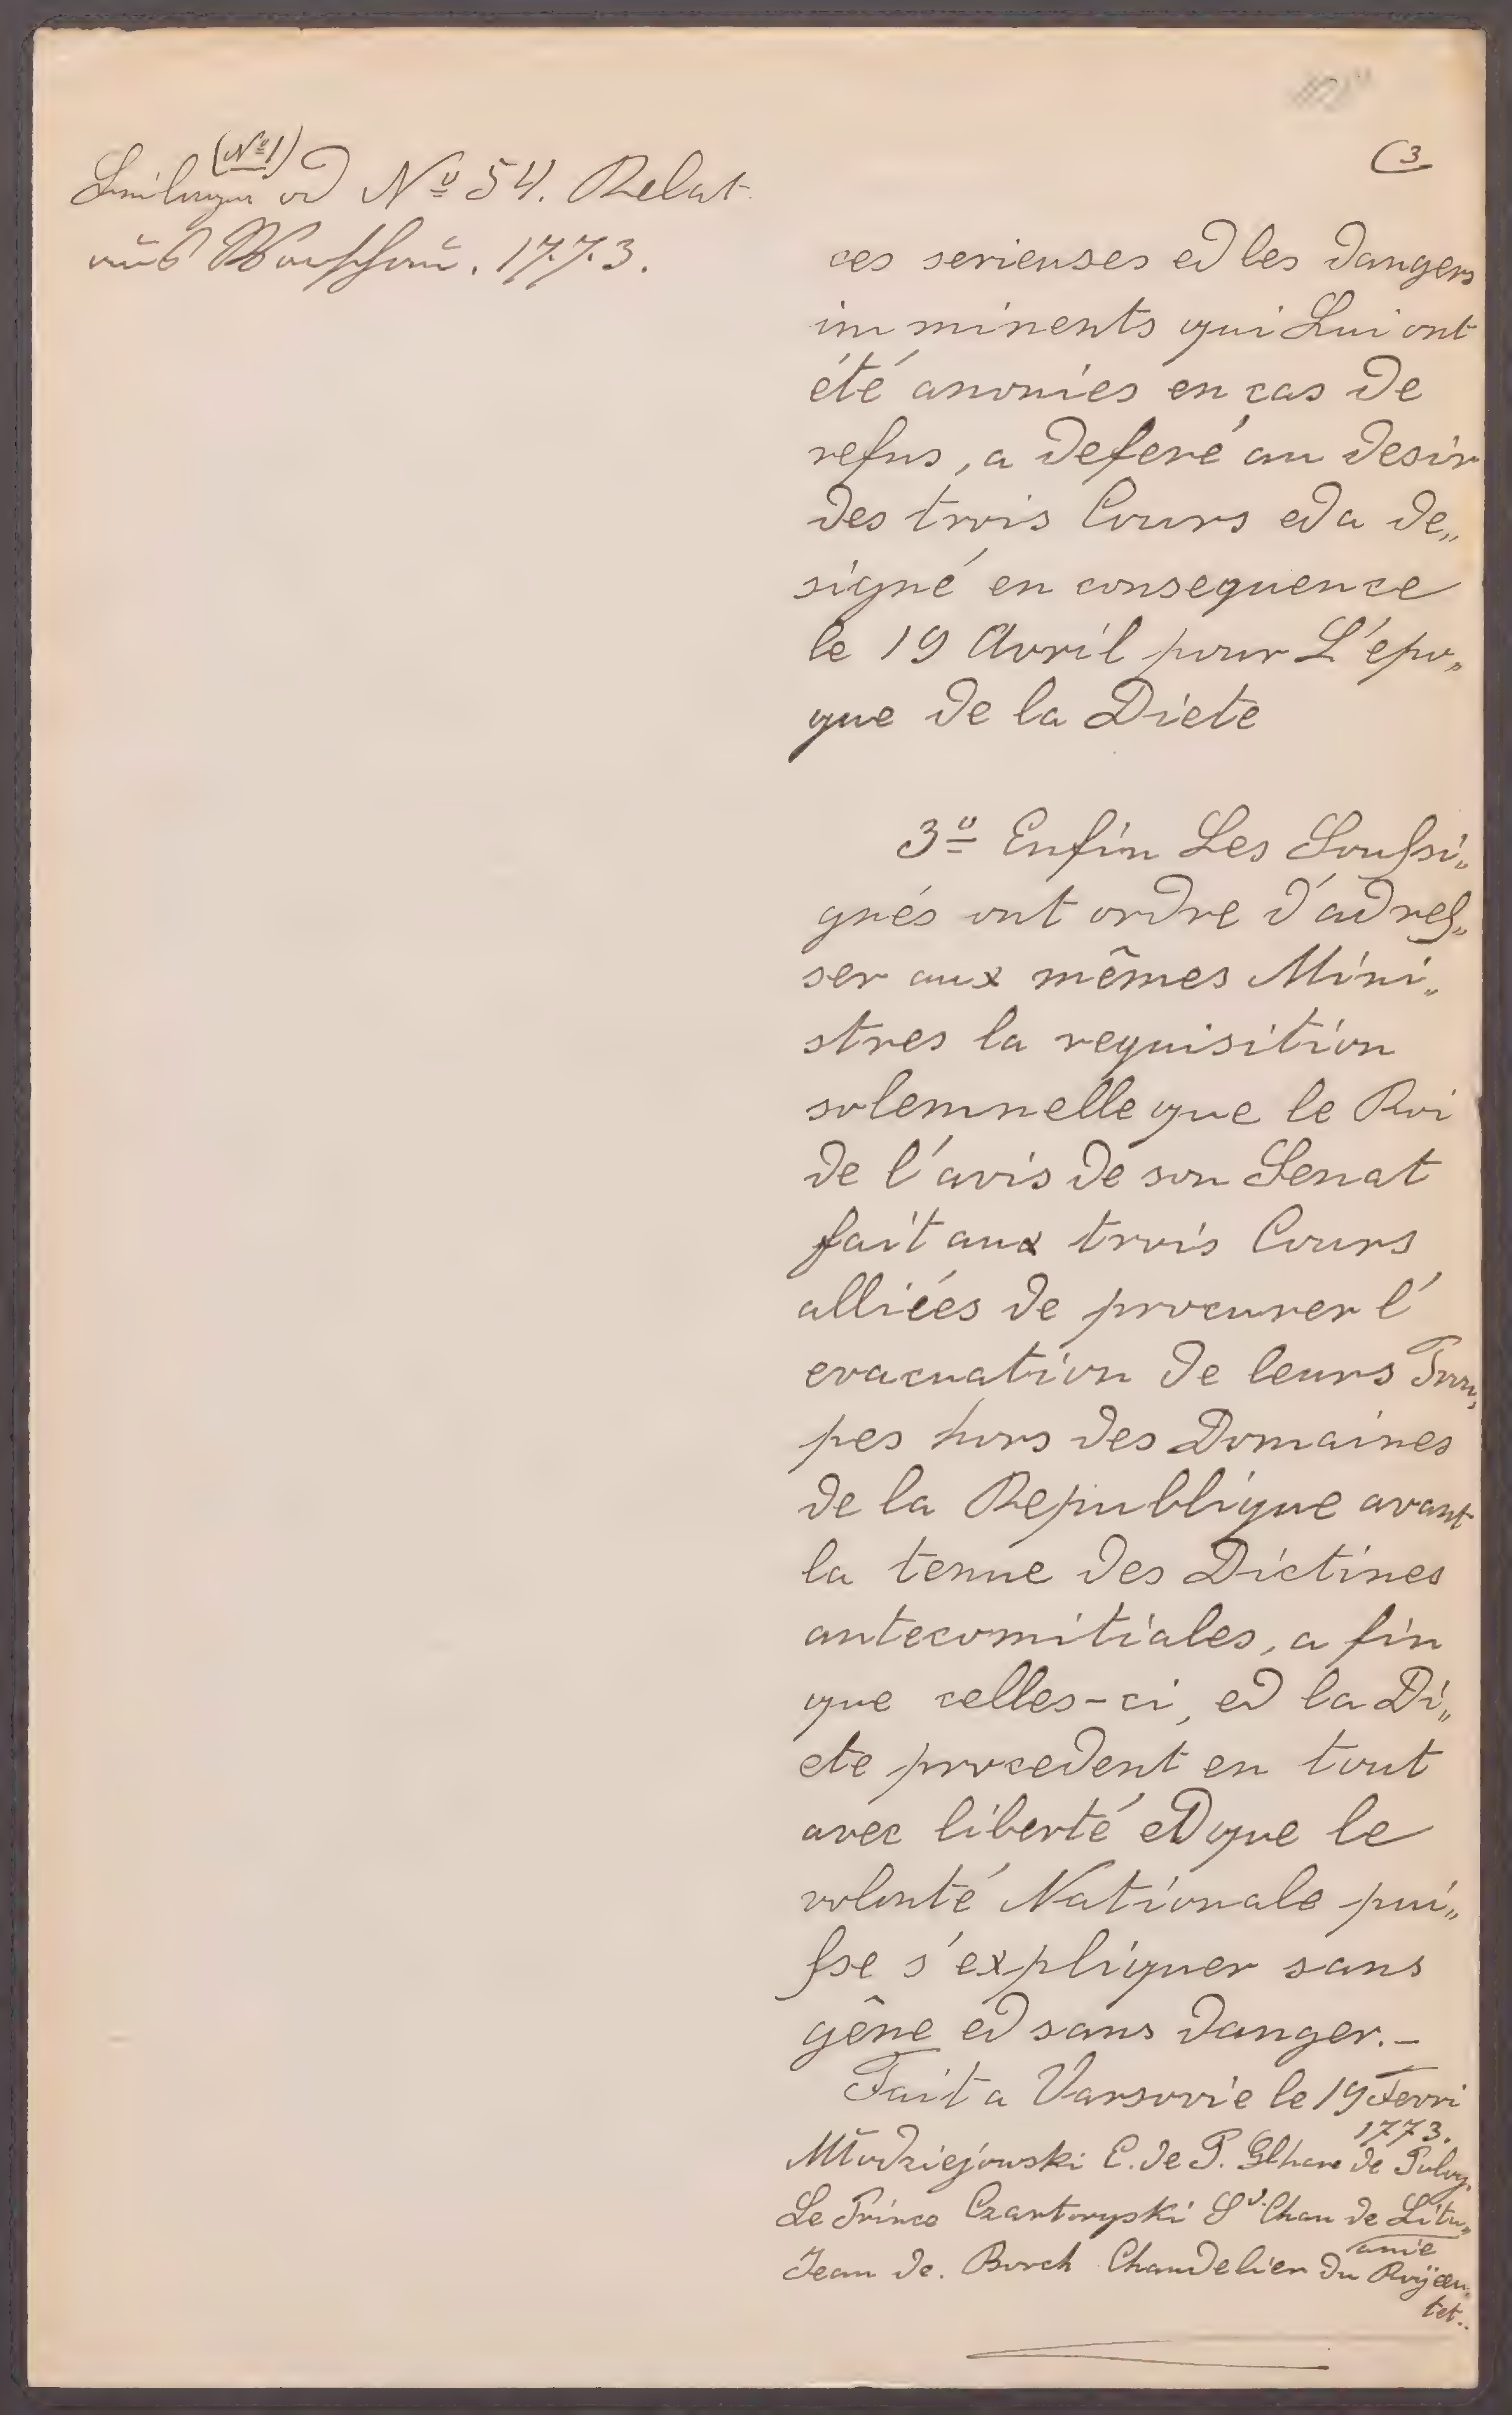 (№1)
Beilage ad № 54. Relat.
aus Warschau. 1773.
(3
ces serieuses et les dangers
imminents qui Lui ont
été anonies en cas de
refus, a deferé au desir
des trois Cours et a de„
signé en consequence
le 19 Avril pour L'épo„
que de la Diete
3º Enfin Les Soussi„
gnés ont ordre d'adres„
ser aux mêmes Mini„
stres la requisition
solemnelle que le Roi
de l'avis de son Senat
fait aux trois Cours
alliées de procurer l'
evacuation de leurs Trou„
pes hors des Domaines
de la Republique avant
la tenue des Dietines
antecomitiales, a fin
que celles-ci, et la Di„
ete procedent en tout
avec liberté et que le
volonté Nationale pui„
sse s'expliquer sans
gêne et sans danger.-
Fait a Varsovie le 19 Fevri
1773.
Młodziejowski E. de P. de
Le Prince Czartoryski Chan de Litu„
anie
Jean de. Borch Chandelier du